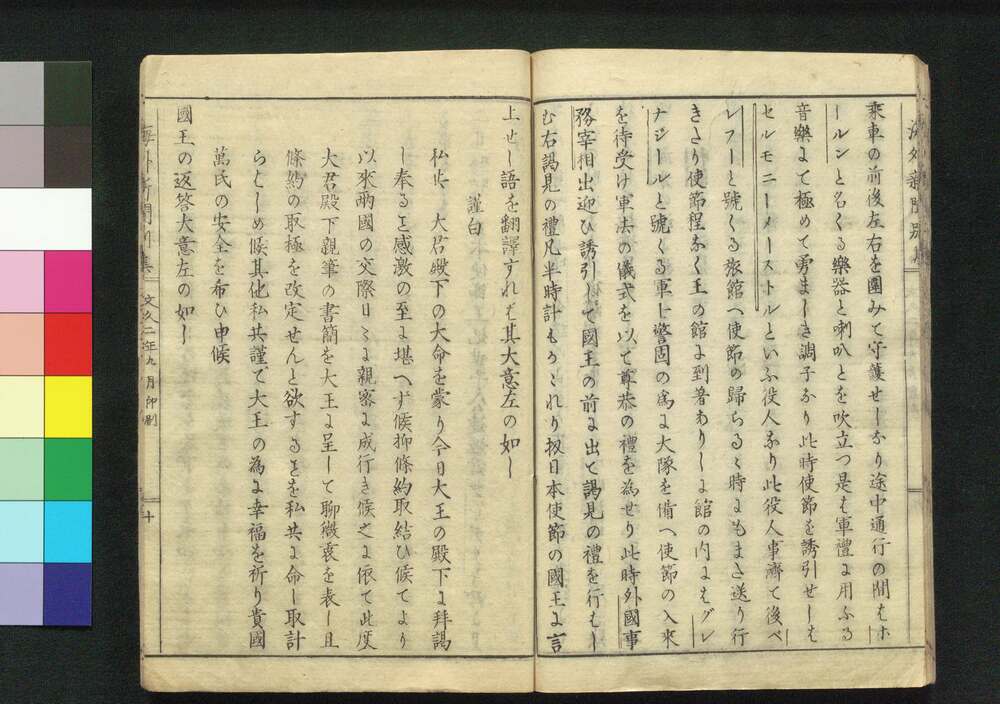 乘車の前後左右を圍みて守護せしなり途中通行の間もホ
ールンと名くる樂器と喇叭とを吹立つ是も軍禮に用ふる
音樂にて極めて勇ましき調子なり此時使節を誘引せしも
セルモニーメーストルといふ役人なり此役人事濟て後ベ
レフーと號くる旅館へ使節の歸らるゝ時にもまた送り行
きたり使節程なく王の館に到着ありしに館の内にもグレ
ナジールと號くる軍士警固の爲に大隊を備へ使節の入來
を待受け軍法の儀式を以て尊恭の禮を為せり此時外國事
務宰相出迎ひ誘引して國王の前に出て謁見の禮を行はし
む右謁見の禮凡半時計もかゝれり扨日本使節の國王に言
上せし語を翻譯すれは其大意左の如し
謹白
私共 大君殿下の大命を蒙り今日大王の殿下に拜謁
し奉ると感激の至に堪へす候抑條約取結ひ候てより
以來兩國の交際日々に親密に成行き候之に依て此度
大君殿下親筆の書簡を大王に呈して聊微衷を表し且
條約の取極を改定せんと欲するとを私共に命し取計
らはしめ候其他私共謹て大王の為に幸福を祈り貴國
萬民の安全を希ひ申候
國王の返答大意左の如し
海外新聞別集 文久二年九月印刷 十